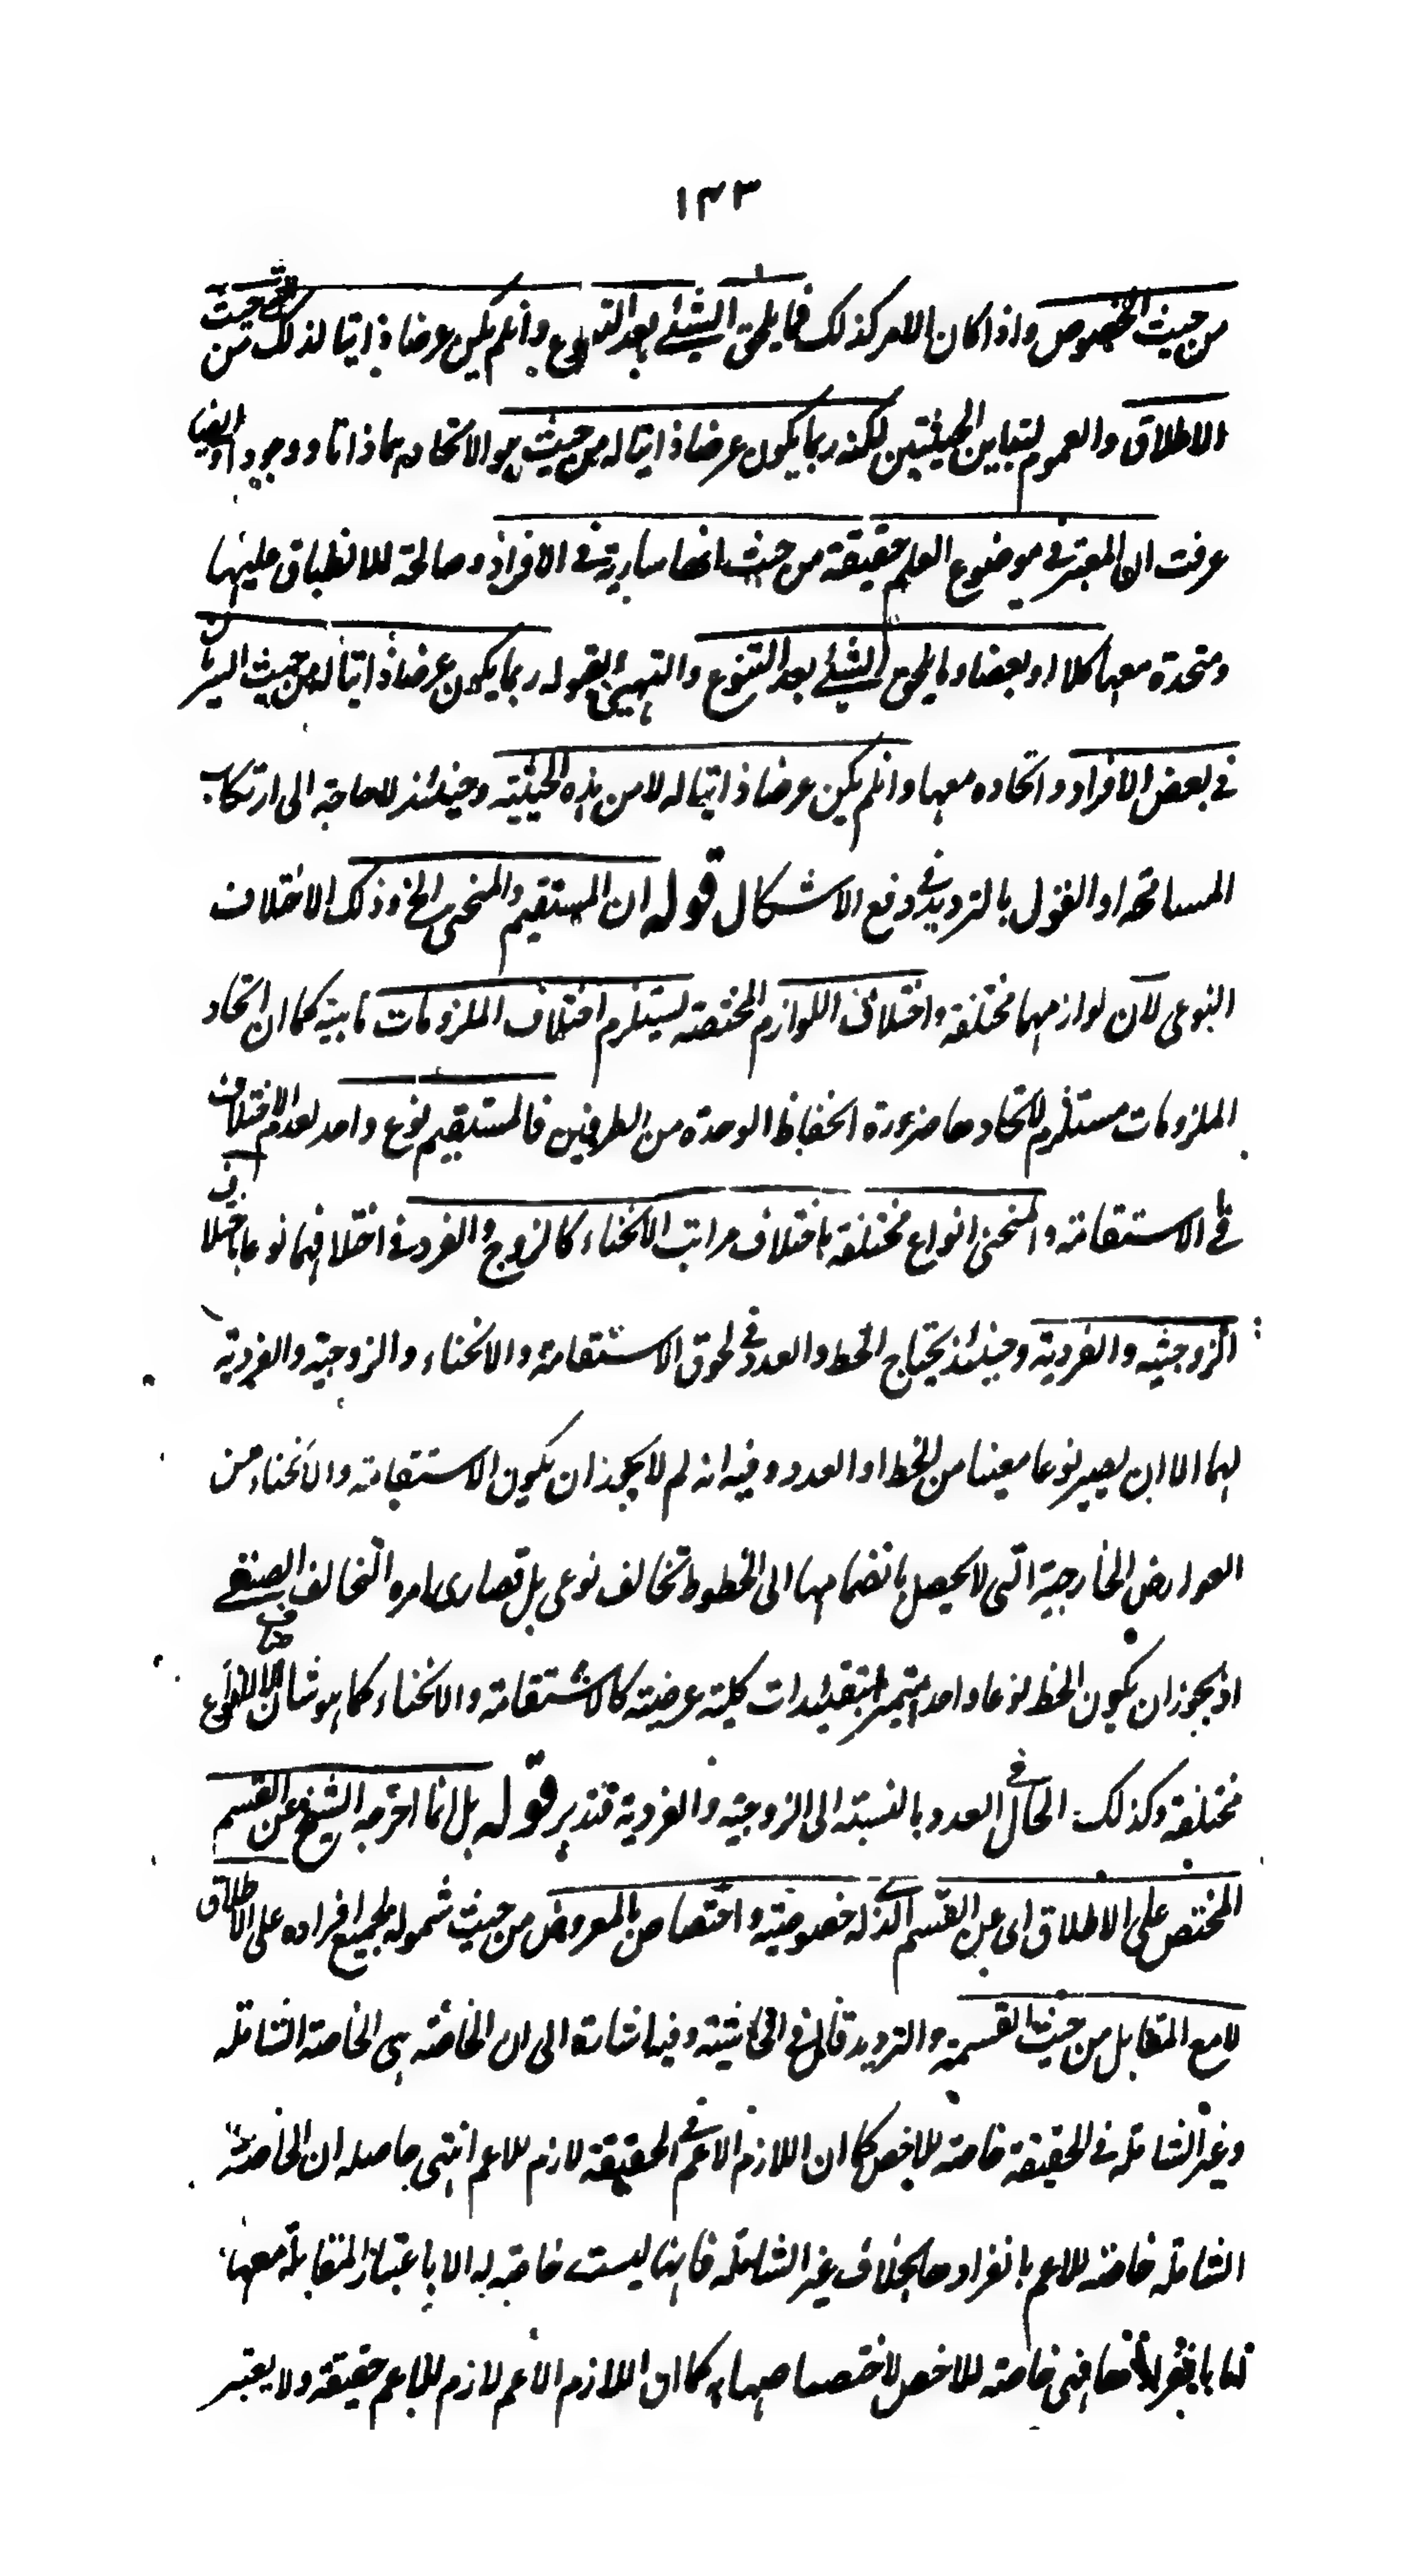 ١٣٣
من حيث الخصوص واذا كان الامر كذلك فما يلحق الشيئ بعد التنوع وانلم يكن عرضا ذاتيا لذلك من حيث
الاطلاق والعموم لتباين الحيثيتين لكنه ربما يكون عرضا ذاتيا له من حيث هو الاتحادهما ذاتا ووجودا وايضا
عرفت ان المعتبر في موضوع العلم حقيقة من حيث انها سارية في الافراد وصالحة للانطباق عليها
ومتحدة معها كلا او بعضا وما يلحق الشيئ بعد التنوع والتهيئ لقبوله ربما يكون عرضا ذاتيا له من حيث السريان
في بعض الافراد واتحاده معها وانلم يكن عرضا ذاتيا له لا من هذه الحيثية وحينئذ لا حاجة الى ارتكاب
المسامحة او القول بالترديد في دفع الاشكال قوله ان المستقيم والمنحنى الخ وذلك الاختلاف
النوعى لان لوازمهما مختلفة واختلاف اللوازم المختصة يستلزم اختلاف الملزومات ماهية كما ان اتحاد
الملزومات مستلزم لاتحادها ضرورة انحفاظ الوحدة من الطرفين فالمستقيم نوع واحد لعدم الاختلاف
في الاستقامة والمنحنى انواع مختلفة باختلاف مراتب الانحناء كالزوج والفرد في اختلافهما نوعا باختلاف
الزوجية والفردية وحينئذ يحتاج الخط والعدد في لحوق الاستقامة والانحناء والزوجية والفردية
لهما الا ان يصير نوعا معينا من الخط او العدد وفيه انه لم لا يجوز ان يكون الاستقامة والانحناء من
العوارض الخارجية التى لا يحصل بانضمامها الى الخطوط تخالف نوعى بل قصارى امره التخالف الصنفى
اذ يجوز ان يكون الخط نوعا واحدا يتميز بتقييدات كلية عرضية كالاستقامة والانحناء كما هو شان الانواع
مختلفة وكذلك الحال في العدد بالنسبة الى الزوجية والفردية فتدبر قوله بل انما اخرجه الشيخ عن القسم
المختص على الاطلاق اى عن القسم الذى له خصوصية واختصاص بالمعروض من حيث شموله لجميع افراده على الاطلاق
لا مع المقابل من حيث القسمة والترديد قال في الحاشية وفيه اشارة الى ان الخاصة هى الخاصة الشاملة
وغير الشاملة في الحقيقة خاصة للاخص كما ان اللازم الاعم في الحقيقة لازم للاعم انتهى حاصله ان الخاصة
الشاملة خاصة للاعم بانفرادها بخلاف غير الشاملة فانها ليست خاصة له الا باعتبار المقابلة معها
فهى خاصة للاخص لاختصاصها به كما ان اللازم الاعم لازم للاعم حقيقة ولا يعتبر